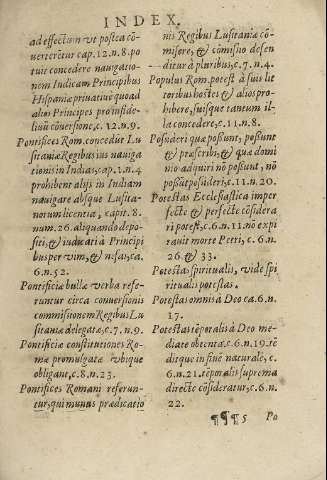 INDEX.
ad effectum vt postea cõ-
uerterẽtur cap.12.n.8. po
tuit concedere nauigatio-
nem Indicam Principibus
Hispaniæ priuatiuè quoad
alios Principes pro infide-
liuũ conuersione, c.12.n.9.
Pontifices Rom. concedũt Lu
sitaniæ Regibus ius nauiga
tionis in Indias, cap.1.n.4
prohibent alijs in Indiam
nauigare absque Lusita-
norum licentia, capit.8.
num.26. aliquando depo-
siti, & iudicati à Principi
bus per vim, & nefas, ca.
6.n.52.
Pontificiæ bullæ verba refe-
runtur circa conuersionis
commissionem Regibus Lu
sitaniæ delegatæ, c.7.n.9.
Pontificiæ constitutiones Ro-
mæ promulgatæ vbique
obligant, c.8.n.23.
Pontifices Romani referun-
tur, qui munus prædicatio
nis Regibus Lusitaniæ cõ-
misere, & cõmissio defen
ditur à pluribus, c.7.n.4.
Populus Rom. potest à suis lit
toribus hostes & alios pro-
hibere, suisque tantum il-
la concedere, c.11.n.8.
Possideri quæ possunt, possunt
& præscribi, & quæ domi
nio adquiri nõ possunt, nõ
possũt possideri, c.11.n.20.
Potestas Ecclesiastica imper
fectè & perfectè cõsidera
ri potest, c.6.n.11. nõ expi
rauit morte Petri, c.6.n.
26. & 33.
Potestas spiritualis, vide spi
ritualis potestas.
Potestas omnis à Deo ca.6.n.
17.
Potestas tẽporalis à Deo me-
diatè obtenta, c.6.n.19. re
ditque in suũ naturale, c.
6.n.21. tẽporalis suprema
directè cõsideratur, c.6.n.
22.
¶¶¶ 5 Po